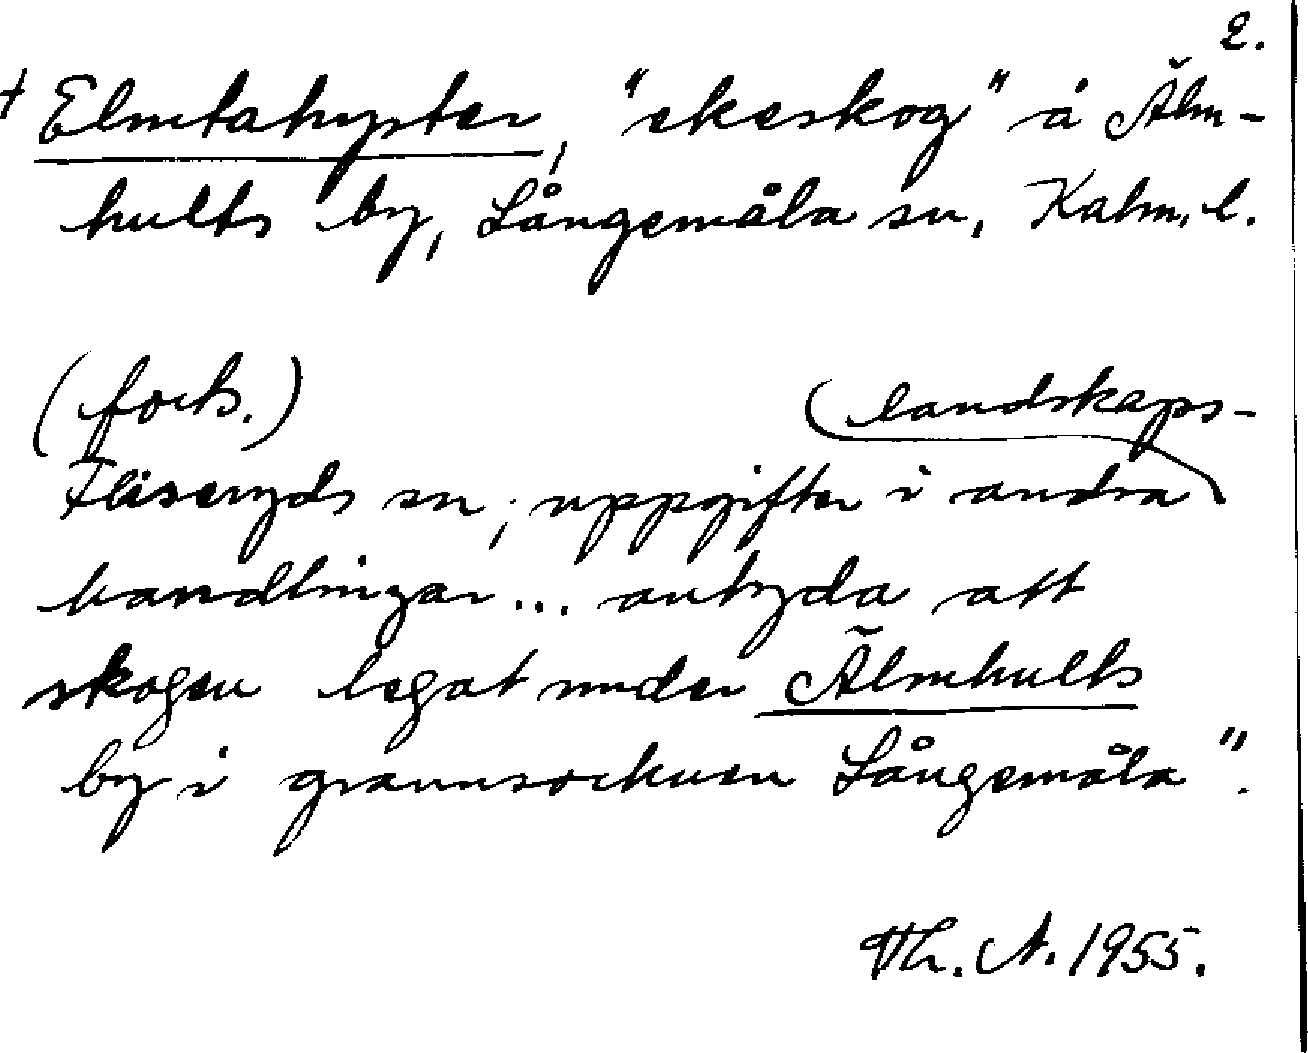 2.
+ Elmtahypter, "ekeskog" å Älm-
hults by, Långemåla sn, Kalm. l.
(forts.) (landskaps-
Fliseryds sn; uppgifter i andra
handlingar... antyda att
skogen legat under Älmhults
by i grannsocknen Långemåla".
Th. A. 1955.